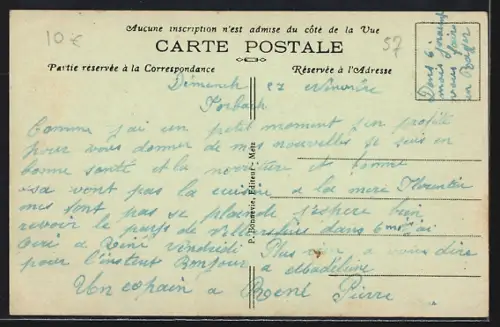 Aucune inscription n'est admise du côté de la Vue
10 €
57
CARTE POSTALE
Partie réservée à la Correspondance
Réservée à l'Adresse
Dans 6
mois
vous
Dimanch 27 Novenbre
Forbach
Comme j'ai un petit moment j'en profite
pour vous donner de mes nouvelles je suis en
bonne santé et la nourriture et bonne
sa vont pas la cuisine a la mere Florentin
mes sont pas se plaindre j'espere bien
revoir le pays de dans 6 mois
a René vendredi Plus rien a vous dire
pour l'instent Bonjour a Madeleine
Un copain a René Pierre
P. Bonnevie, Editeur - Metz